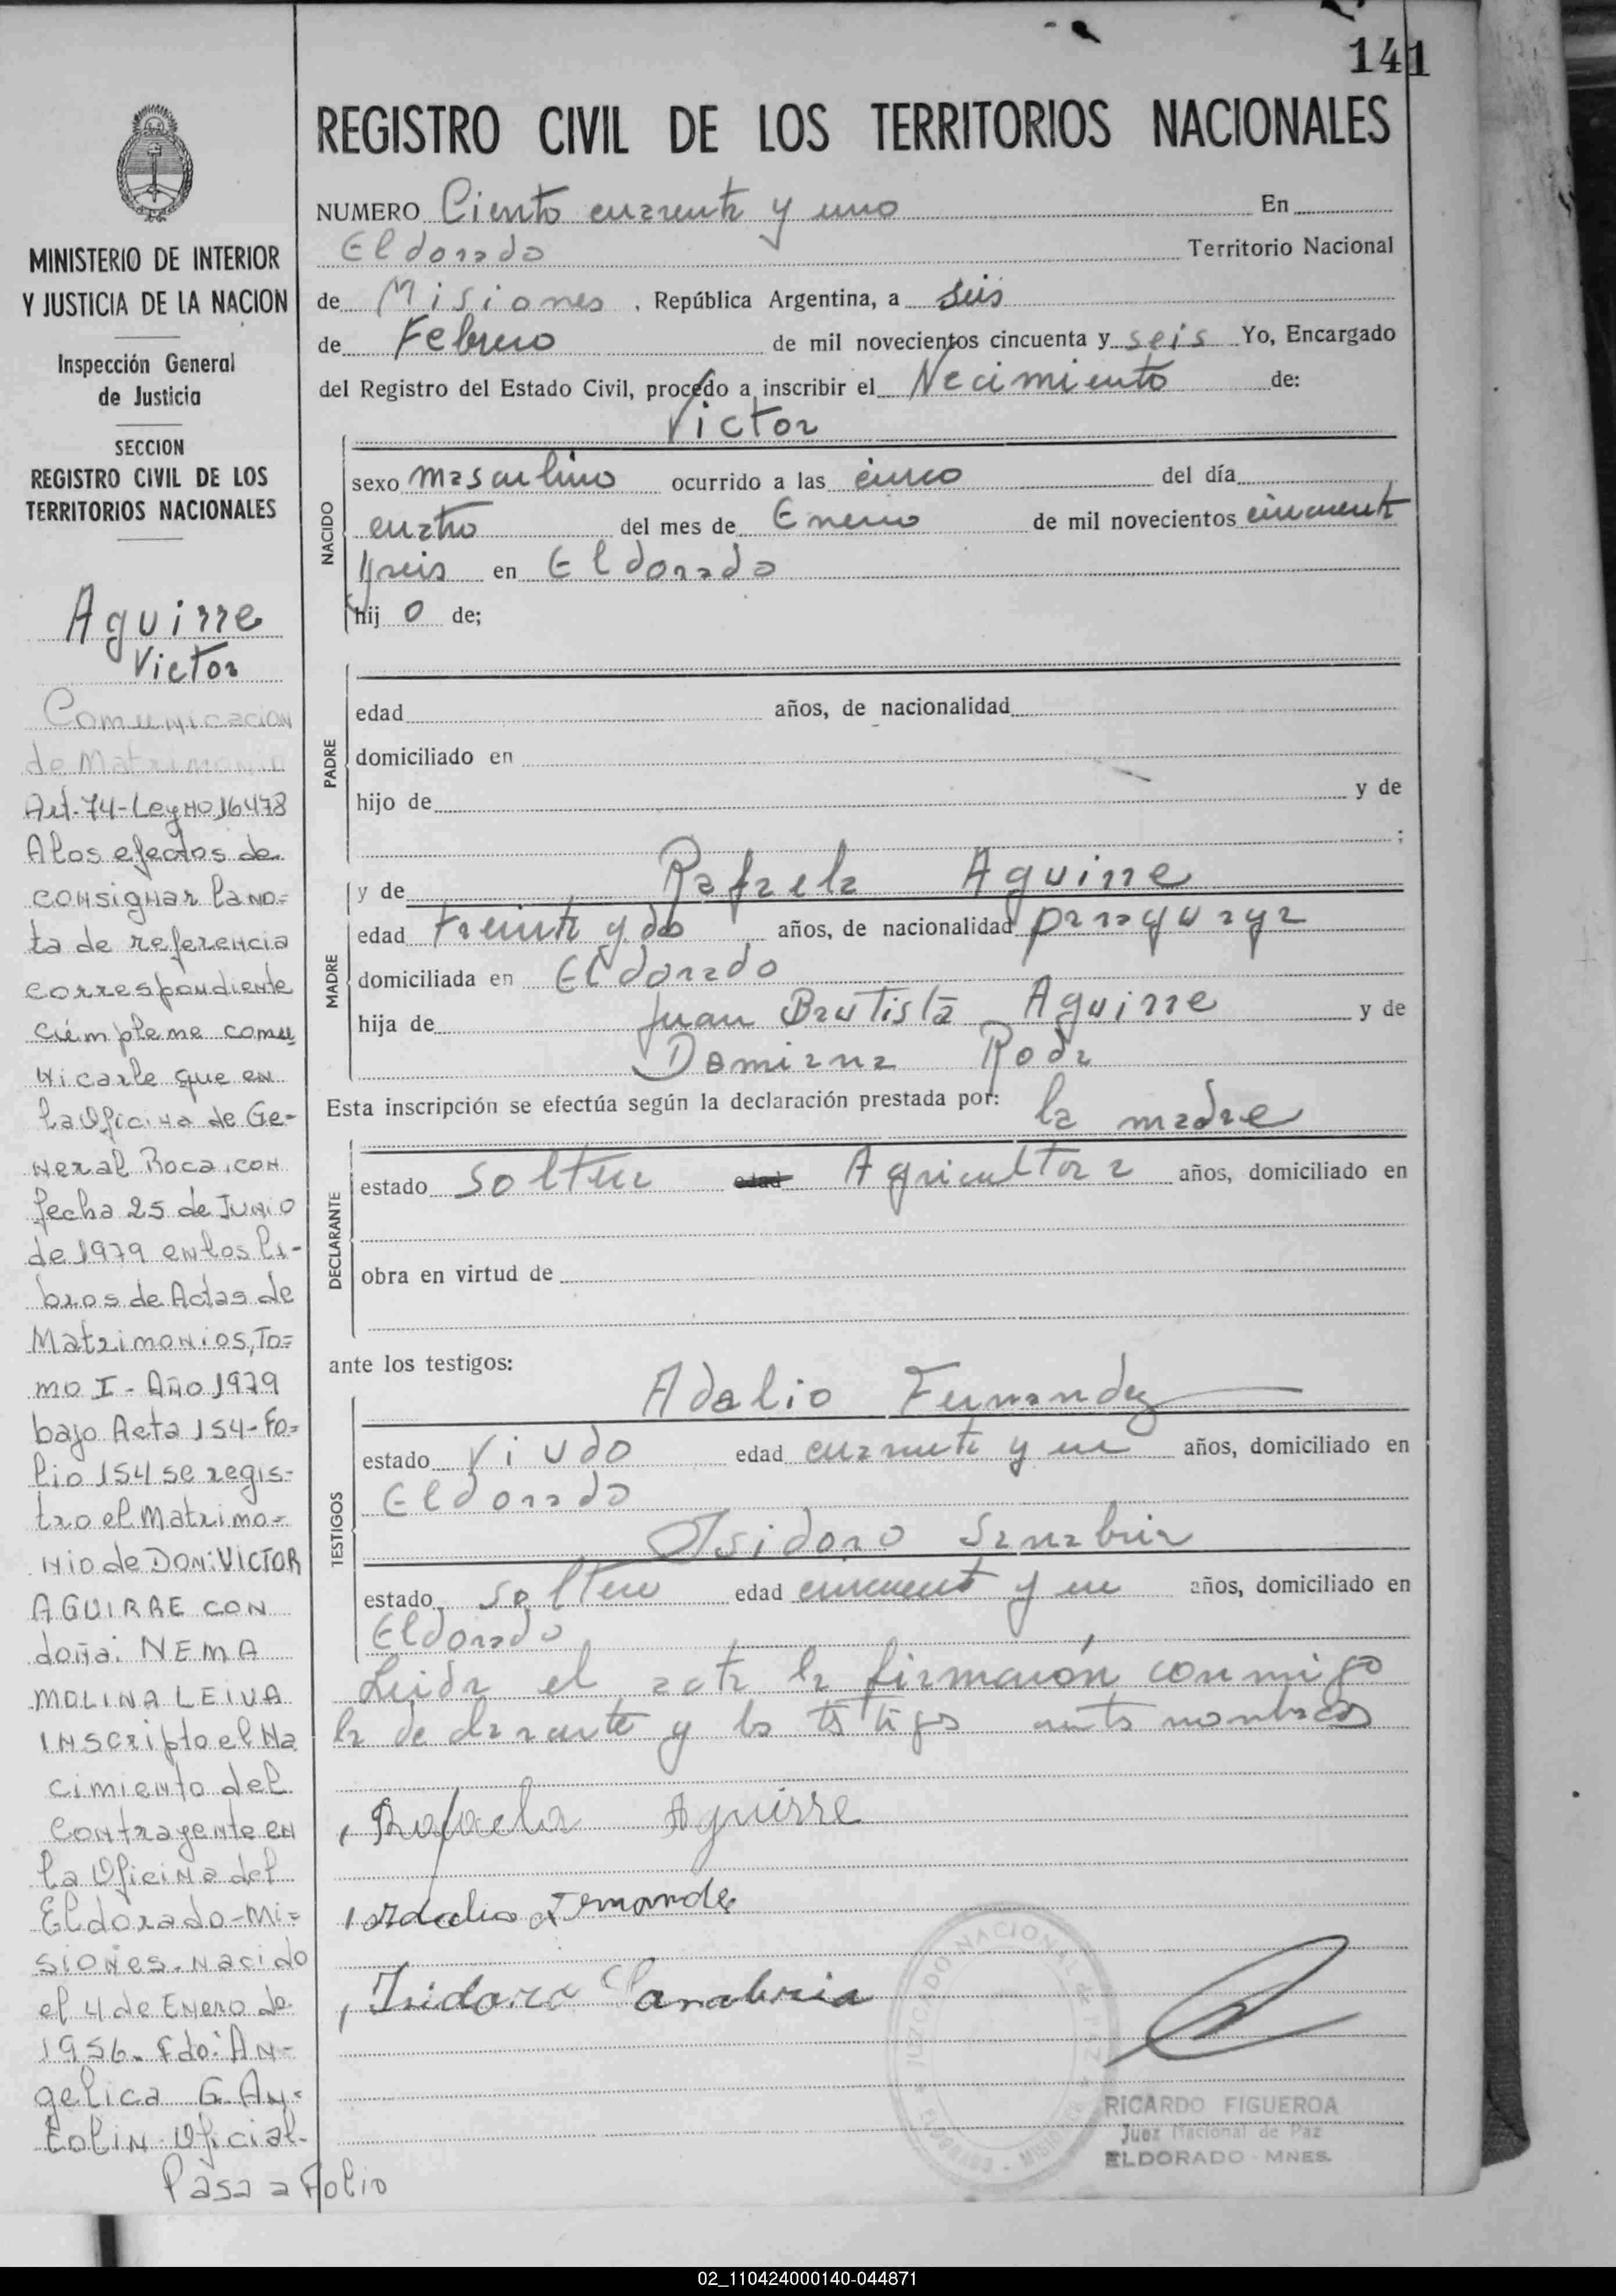 141
REGISTRO CIVIL DE LOS TERRITORIOS NACIONALES
MINISTERIO DE INTERIOR
Y JUSTICIA DE LA NACION
Inspección General
de Justicia
SECCION
REGISTRO CIVIL DE LOS
TERRITORIOS NACIONALES
Aguirre
Victor
Comunicacion
de Matrimonio
Art.74-Ley No 16478
A los efectos de
consignar la no=
ta de referencia
correspondiente
cúmpleme comu
nicarle que en
la Oficina de Ge-
neral Roca, con
fecha 25 de Junio
de 1979 en los li-
bros de Actas de
Matrimonios, To=
mo I - Año 1979
bajo Acta 154-Fo=
lio 154 se regis-
tro el Matrimo=
nio de Don: VICTOR
AGUIRRE CON
doña: NEMA
MOLINA LEIVA
inscripto el Na
cimiento del
contrayente en
la Oficina del
Eldorado-Mi=
siones. Nacido
el 4 de Enero de
1956. Fdo: An-
gelica G. An=
tolin Oficial-
Pasa a Folio
NUMERO Ciento cuarenta y uno En
Eldorado Territorio Nacional
de Misiones, República Argentina, a seis
de Febrero de mil novecientos cincuenta y seis Yo, Encargado
del Registro del Estado Civil, procedo a inscribir el Nacimiento de:
Victor
NACIDO
sexo masculino ocurrido a las cinco del día
cuatro del mes de Enero de mil novecientos cincuenta
y seis en Eldorado
hij o de;
PADRE
edad años, de nacionalidad
domiciliado en
hijo de y de
;
MADRE
y de Rafaela Aguirre
edad treinta y dos años, de nacionalidad paraguaya
domiciliada en Eldorado
hija de Juan Bautista Aguirre y de
Damiana Roda
Esta inscripción se efectúa según la declaración prestada por: la madre
DECLARANTE
estado soltera edad Agricultora años, domiciliado en
obra en virtud de
ante los testigos:
Adalio Fernandez
TESTIGOS
estado viudo edad cuarenta y un años, domiciliado en
Eldorado
Isidoro Sanabria
estado soltero edad cincuenta y un años, domiciliado en
Eldorado
Leida el acta la firmaron conmigo
la declarante y los testigos nombrados
Rafaela Aguirre
Adalio Fernandez
Isidoro Sanabria
JUZGADO NACIONAL DE PAZ
ELDORADO - MISIONES
RICARDO FIGUEROA
Juez Nacional de Paz
ELDORADO - MNES.
02_110424000140-044871